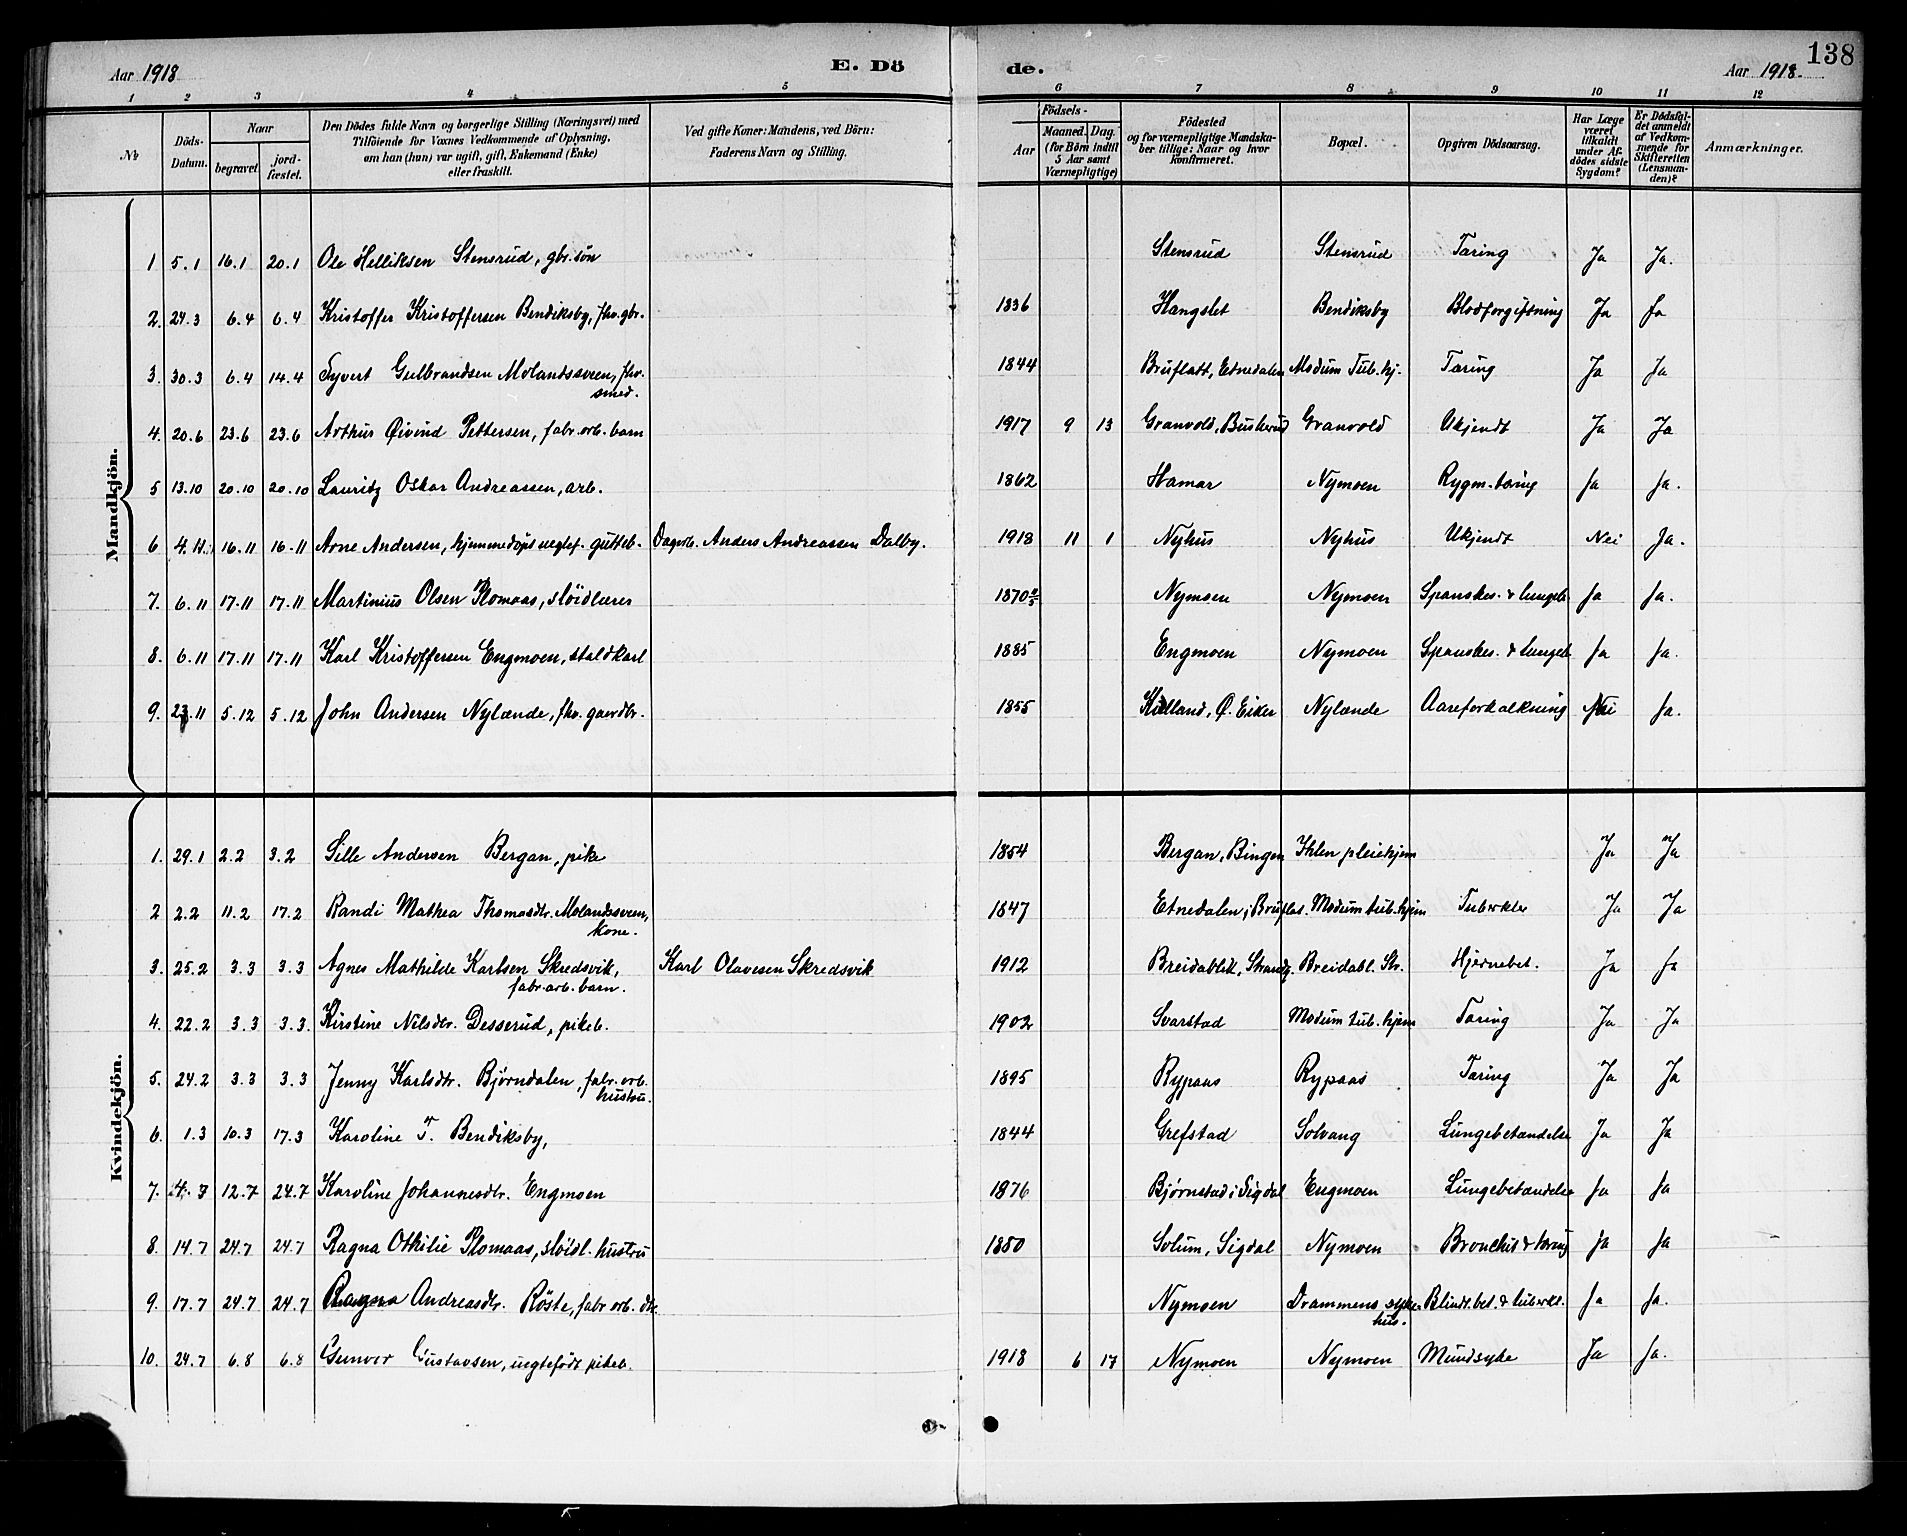 138
Aar 1918 E. Dö de. Aar 1918.
1 2 3 4 5 6 7 8 9 10 11 12
№ Döds-Datum. Naar begravet jord-fæstet. Den Dödes fulde Navn og borgerlige Stilling (Næringsvei) med Tilföiende for Voxnes Vedkommende af Oplysning, om han (hun) var ugift, gift, Enkemand (Enke) eller fraskilt. Ved gifte Koner: Mandens, ved Börn: Faderens Navn og Stilling. Födsels- Aar Maaned. Dag. (for Börn indtil 5 Aar samt Værnepligtige) Födested og for værnepligtige Mandskaber tillige: Naar og hvor konfirmeret. Bopæl. Opgiven Dödsaarsag. Har Læge været tilkaldt under Afdödes sidste Sygdom? Er Dödsfaldet anmeldt af Vedkommende for Skifteretten (Lensmanden)? Anmærkninger.
Mandkjön.
1 5.1 16.1 20.1 Ole Helliksen Stensrud, gbr. søn Stensrud Stensrud Tæring Ja Ja.
2. 24.3 6.4 6.4 Kristoffer Kristoffersen Bendiksby, fhv. gbr. 1836 Hangslet Bendiksby Blodforgiftning Ja Ja
3. 30.3 6.4 14.4 Syvert Gulbrandsen Molandsveen, fhv. smed. 1844 Bruflatt, Etnedalen Modum Tub.hj. Tæring Ja Ja
4. 20.6 23.6 23.6 Arthur Øivind Pettersen, fabr. arb. barn 1917 9 13 Granvold, Buskerud Granvold Ukjendt Ja Ja
5 13.10 20.10 20.10 Lauritz Oskar Andreassen, arb. 1862 Hamar Nymoen Rygm.tæring Ja Ja.
6 4.11. 16.11 16.11 Arne Andersen, hjemmedøpt uegtef. gutteb. Dagarb. Anders Andreassen Dalby. 1918 11 1 Nyhus Nyhus Ukjendt Nei Ja.
7. 6.11 17.11 17.11 Martinius Olsen Plomaas, sløidlærer 1870 Nymoen Nymoen Spanskes. & lungeb. Ja Ja.
8. 6.11 17.11 17.11 Karl Kristoffersen Engmoen, staldkarl 1885 Engmoen Nymoen Spanskes. & lungeb. Ja Ja.
9. 23.11 5.12 5.12 John Andersen Nylænde, fhv. gaardbr. 1855 Kidland, Ø. Eiker Nylænde Aareforkalkning Nei Ja.
Kvindekjön.
1. 29.1 2.2 3.2 Sille Andersen Bergan, pike 1854 Bergan, Bingen Ihlen pleiehjem Ja Ja
2 2.2 11.2 17.2 Randi Mathea Thomasdtr. Molandsveen, kone. 1847 Etnedalen i Bruflat. Modum tub.hjem Tuberkler Ja Ja
3. 25.2 3.3 3.3 Agnes Mathilde Karlsen Skredsvik, fabr. arb. barn. Karl Olavesen Skredsvik 1912 Breidablik, Strandg. Breidabl. Str. Hjernebet. Ja Ja
4. 22.2 3.3 3.3. Kirstine Nilsdtr. Desserud, pikeb. 1902 Svarstad Modum tub.hjem Tæring Ja Ja
5. 24.2 3.3 3.3 Jenny Karlsdtr. Bjørndalen, fabr. arb. hustru. 1895 Rypaas Rypaas Tæring Ja Ja
6. 1.3 10.3 17.3 Karoline T. Bendiksby, 1844 Grefstad Solvang Lungebetændelse Ja Ja
7. 4.7 12.7 24.7 Karoline Johannesdtr. Engmoen 1876 Bjørnstad i Sigdal Engmoen Lungebetændelse Ja Ja
8. 14.7 24.7 24.7 Ragna Othilie Plomaas, sløidl. hustru 1880 Solum, Sigdal Nymoen Bronchit & tæring Ja Ja
9. 17.7 24.7 24.7 Ragna Andreasdtr. Røste, fabr. arb. dtr. Nymoen Drammens sykehus. Blindt.bet. & tuberkl. Ja Ja.
10. 24.7 6.8 6.8 Gunvor Gustavsen, uegtefødt pikeb. 1918 6 17 Nymoen Nymoen Mundsyke Ja Ja.